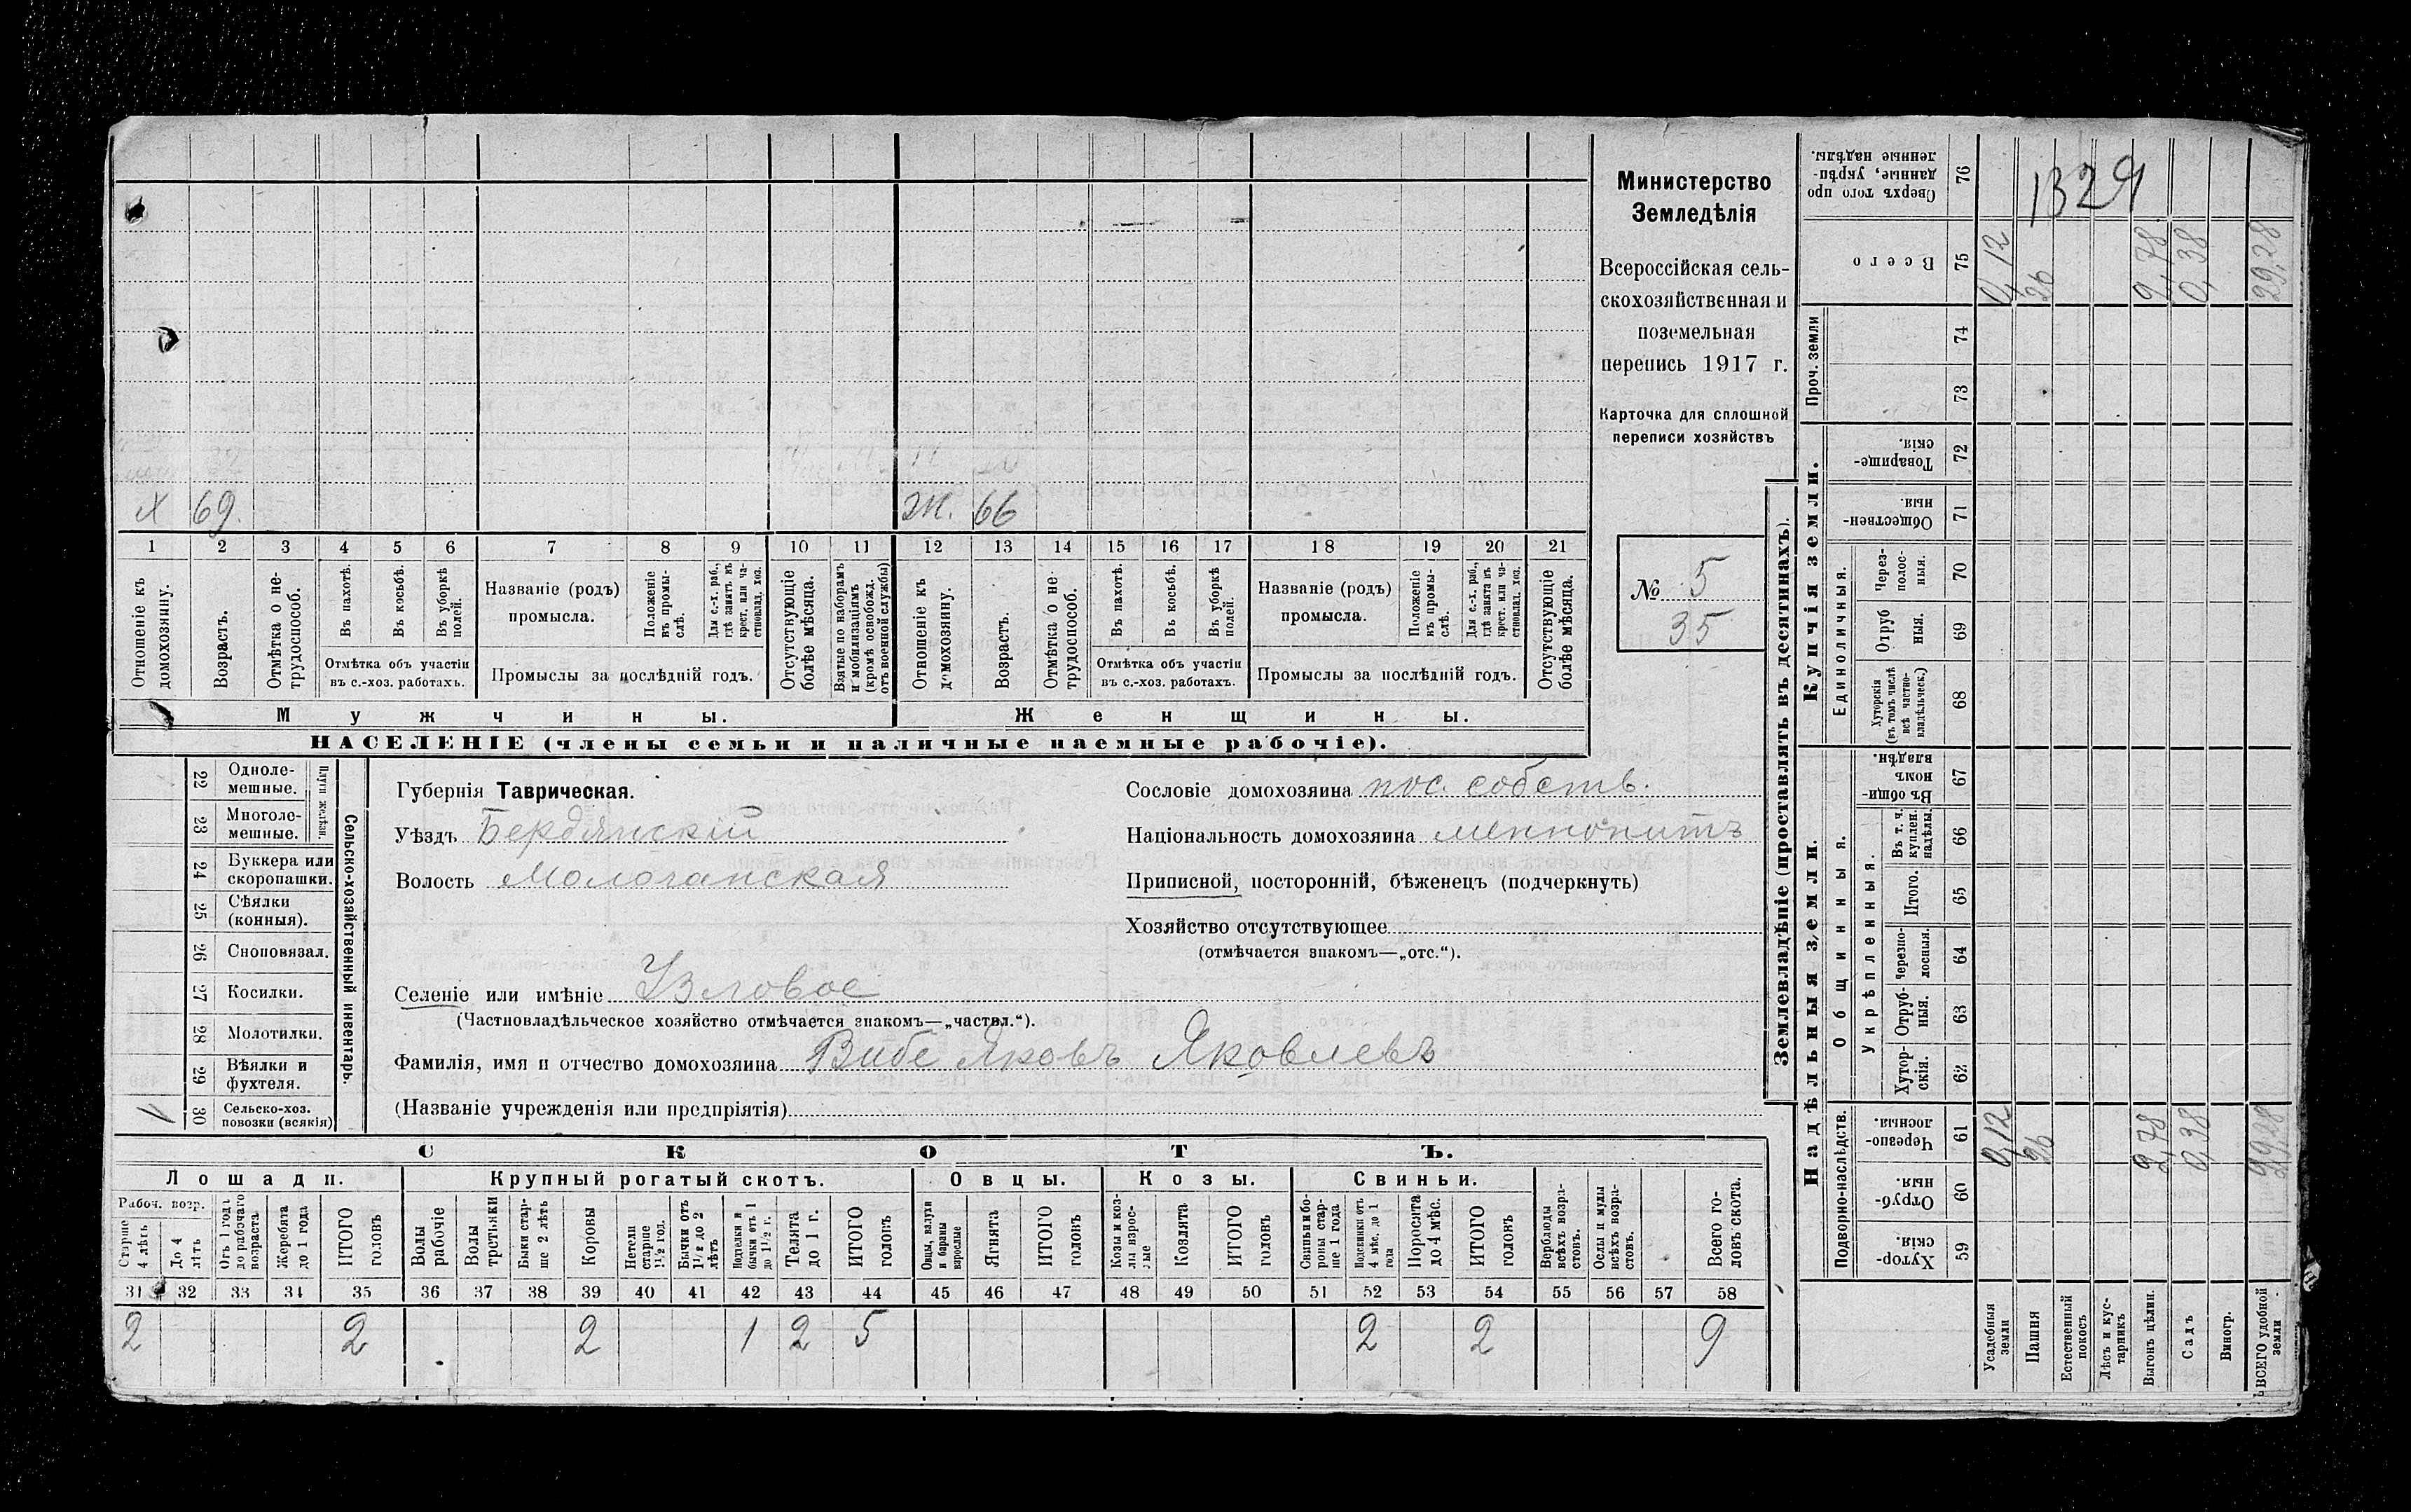 Министерство
Земледѣлія
Всероссійская сель-
скохозяйственная и
поземельная
перепись 1917 г.
Карточка для сплошной
переписи хозяйствъ
№ 5
35
х 69. Ж. 66
1 2 3 4 5 6 7 8 9 10 11 12 13 14 15 16 17 18 19 20 21
Отношеніе къ домохозяину.
Возрастъ.
Отмѣтка о не-трудоспособ.
Въ пахотѣ.
Въ косьбѣ.
Въ уборкѣ полей.
Отмѣтка объ участіи
въ с.-хоз. работахъ.
Названіе (родъ)
промысла.
Положеніе въ промы-слѣ.
Для с.-х. раб., гдѣ занятъ въ крест. или ча-стновлад. хоз.
Промыслы за послѣдній годъ.
Отсутствующіе болѣе мѣсяца.
Взятые по наборамъ и мобилизаціямъ (кромѣ освобожд. отъ военной службы)
Отношеніе къ домохозяину.
Возрастъ.
Отмѣтка о не-трудоспособ.
Въ пахотѣ.
Въ косьбѣ.
Въ уборкѣ полей.
Отмѣтка объ участіи
въ с.-хоз. работахъ.
Названіе (родъ)
промысла.
Положеніе въ промы-слѣ.
Для с.-х. раб., гдѣ занята въ крест. или ча-стновлад. хоз.
Промыслы за послѣдній годъ.
Отсутствующіе болѣе мѣсяца.
Мужчины. Женщины.
НАСЕЛЕНІЕ (члены семьи и наличные наемные рабочіе).
Сельско-хозяйственный инвентарь.
Плуги желѣзн.
22 Одноле-мешные.
23 Многоле-мешные.
24 Буккера или скоропашки.
25 Сѣялки (конныя).
26 Сноповязал.
27 Косилки.
28 Молотилки.
29 Вѣялки и фухтеля.
1 30 Сельско-хоз. повозки (всякія)
Губернія Таврическая.
Уѣздъ Бердянскій
Волость Молочанская
Селеніе или имѣніе Узловое
(Частновладѣльческое хозяйство отмѣчается знакомъ—„частвл.“).
Фамилія, имя и отчество домохозяина Вибе Яковъ Яковлевъ
(Названіе учрежденія или предпріятія)
Сословіе домохозяина пос. собств.
Національность домохозяина меннонитъ
Приписной, посторонній, бѣженецъ (подчеркнуть)
Хозяйство отсутствующее
(отмѣчается знакомъ—„отс.“).
СКОТЪ.
Лошади. Крупный рогатый скотъ. Овцы. Козы. Свиньи.
Рабоч. возр.
Старше 4 лѣтъ
До 4 лѣтъ
Отъ 1 года до рабочаго возраста
Жеребята до 1 года
ИТОГО головъ
Волы рабочіе
Волы третьяки
Быки стар-ше 2 лѣтъ
Коровы
Нетели старше 1½ год.
Бычки отъ 1½ до 2 лѣтъ
Подтелки и бычки отъ 1 до 1½ г.
Телята до 1 г.
ИТОГО головъ
Овцы, валухи и бараны взрослые
Ягнята
ИТОГО головъ
Козы и коз-лы взрос-лые
Козлята
ИТОГО головъ
Свиньи и бо-ровы стар-ше 1 года
Подсвинки отъ 4 мѣс. до 1 года
Поросята до 4 мѣс.
ИТОГО головъ
Верблюды всѣхъ возра-стовъ.
Ослы и мулы всѣхъ возра-стовъ.
Всего го-ловъ скота.
31 32 33 34 35 36 37 38 39 40 41 42 43 44 45 46 47 48 49 50 51 52 53 54 55 56 57 58
2 2 2 1 2 5 2 2 9
Землевладѣніе (проставлять въ десятинахъ).
Надѣльныя земли. Купчія земли. Проч. земли
Подворно-наслѣдств.
Общинныя.
Укрѣпленныя.
Единоличныя.
59 Хутор-скія.
60 Отруб-ныя.
61 Черезпо-лосныя.
62 Хутор-скія.
63 Отруб-ныя.
64 Черезпо-лосныя.
65 Итого.
66 Въ т. ч. куплен. надѣлы.
67 Въ общи-номъ владѣн.
68 Хуторскія (въ томъ числѣ всѣ частно-владѣльческ.)
69 Отруб ныя.
70 Через-полос-ныя.
71 Обществен-ныя
72 Товарище-скія.
73
74
75 Всего
76 Сверхъ того про данные, укрѣп-ленные надѣлы.
1329
Усадебныя земли 0,12 0,12
Пашня 26 26
Естественный покосъ
Лѣсъ и кус-тарникъ
Выгонъ цѣлин. 2,78 2,78
Садъ 0,38 0,38
Виногр.
ВСЕГО удобной земли 29,28 29,28